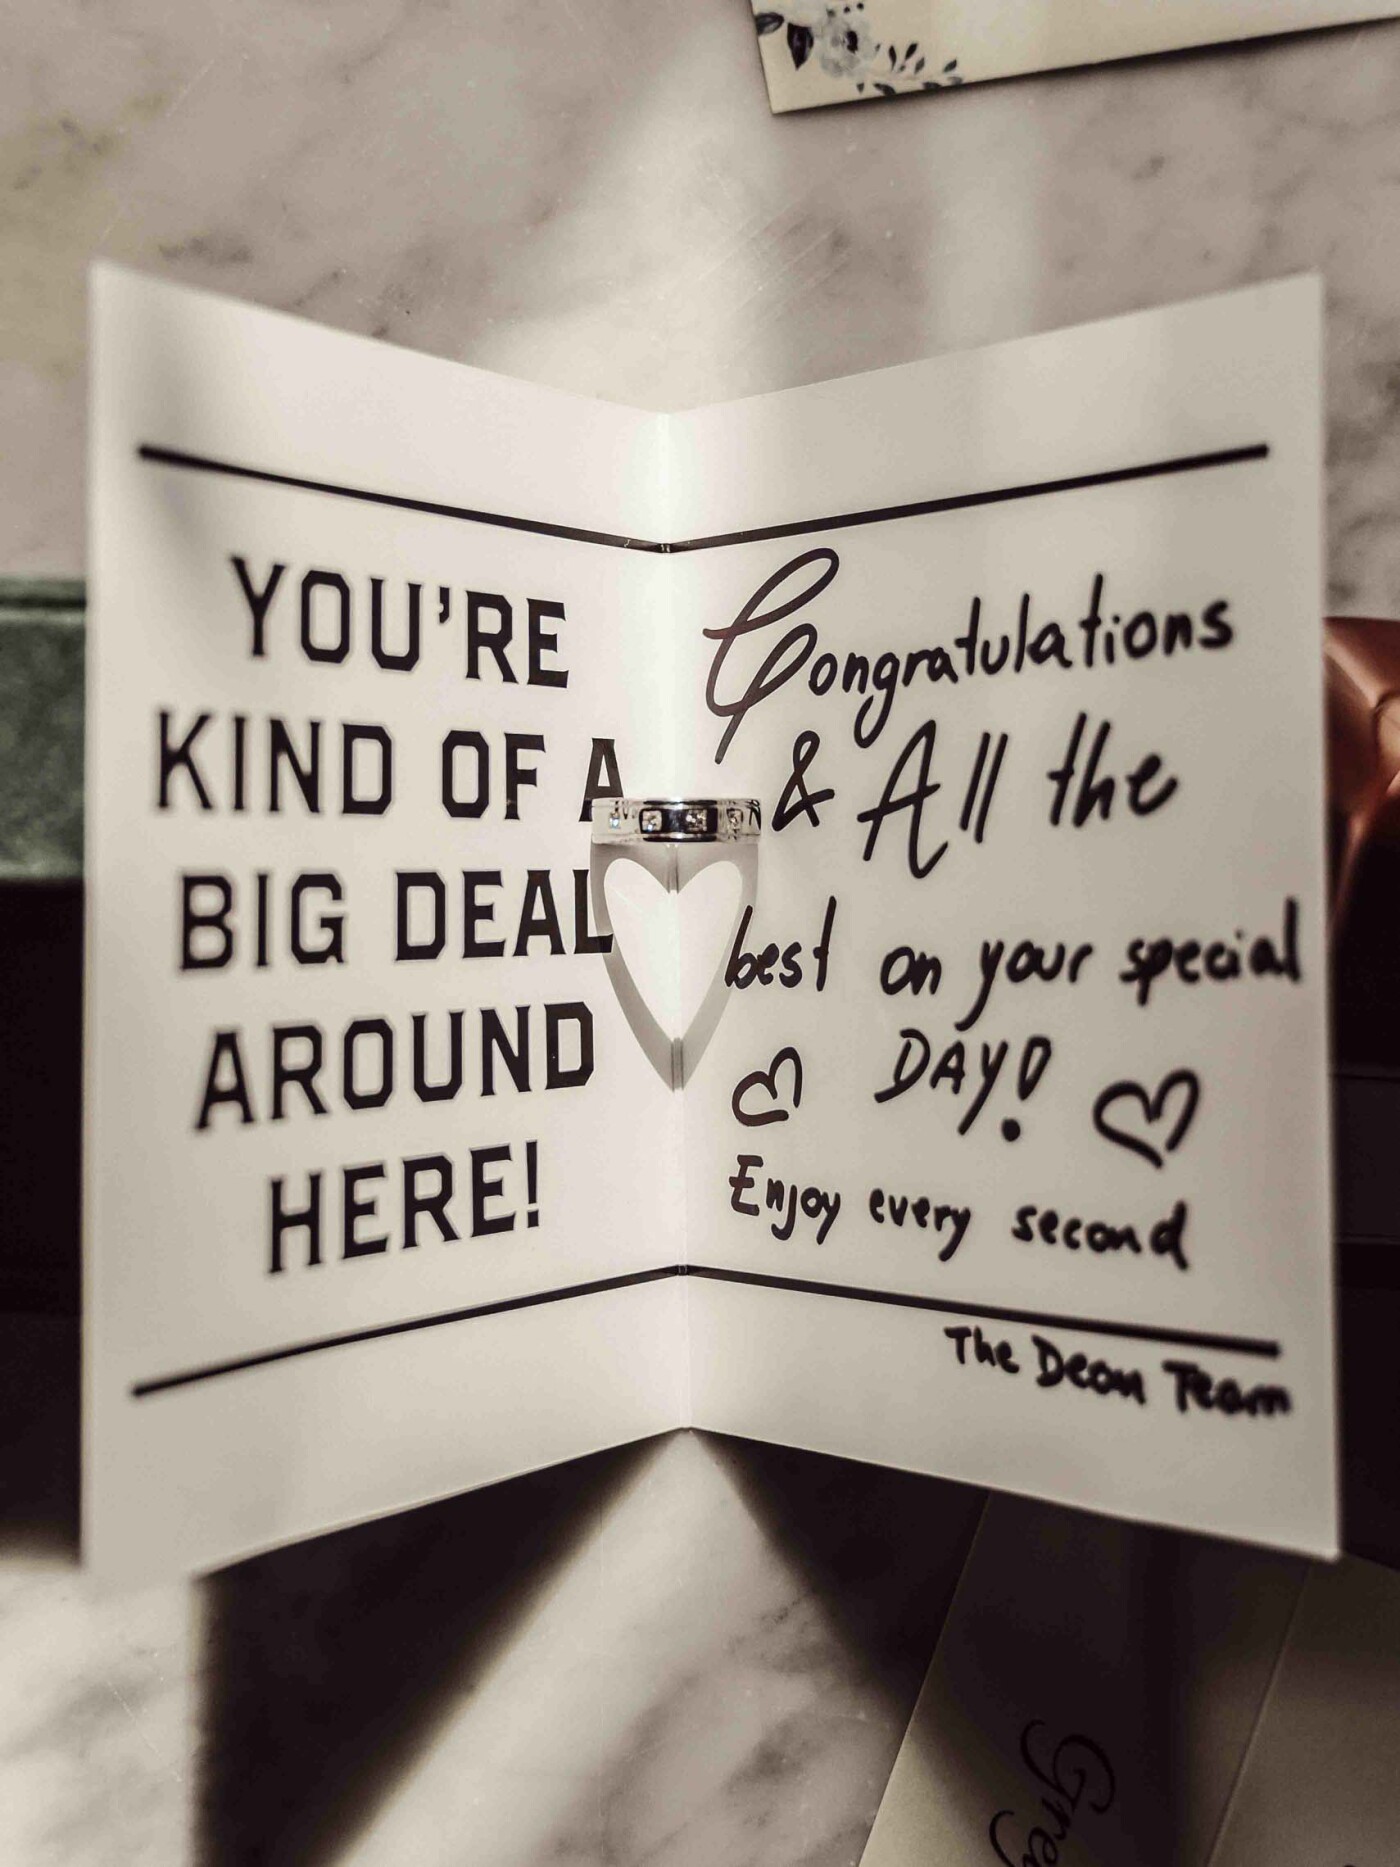 YOU'RE
KIND OF A
BIG DEAL
AROUND
HERE!
Congratulations
& All the
best on your special
DAY!
Enjoy every second
The Dean Team